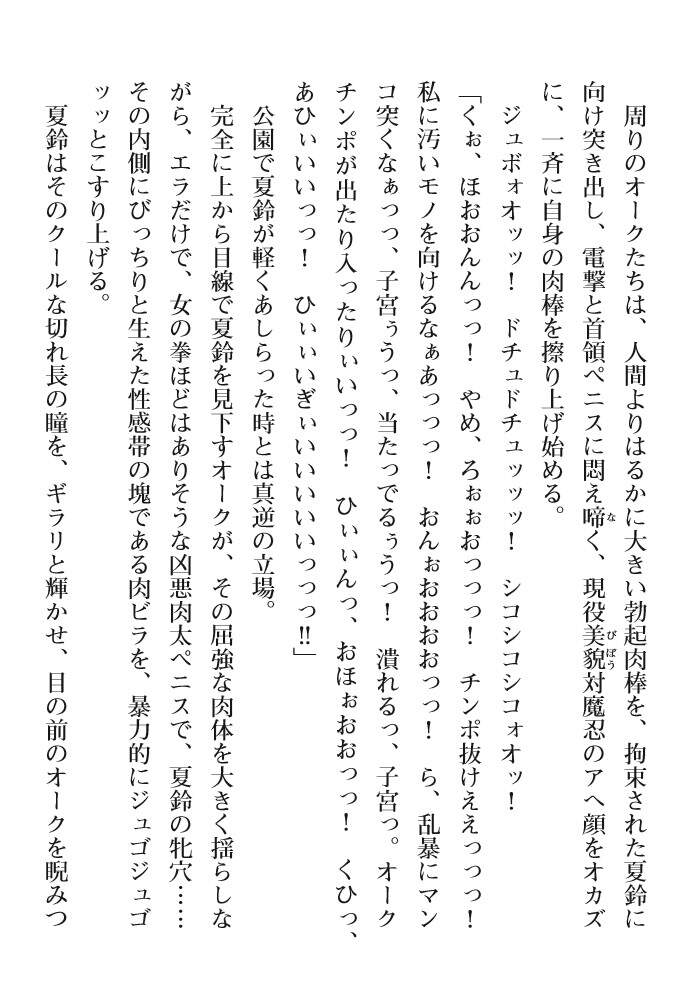 周りのオークたちは、人間よりはるかに大きい勃起肉棒を、拘束された夏鈴に
向け突き出し、電撃と首領ペニスに悶え啼く、現役美貌対魔忍のアヘ顔をオカズ
に、一斉に自身の肉棒を擦り上げ始める。
ジュボォオッッ！　ドチュドチュッッッ！　シコシコシコォオッ！
「くぉ、ほおおんんっっ！　やめ、ろぉぉおっっっ！　チンポ抜けええっっっ！
私に汚いモノを向けるなぁあっっっ！　おんぉおおおおっっ！　ら、乱暴にマン
コ突くなぁっっ、子宮ぅうっ、当たっでるぅうっ！　潰れるっ、子宮っ。オーク
チンポが出たり入ったりぃいっっ！　ひぃぃんっ、おほぉおおっっ！　くひっ、
あひぃいいっっ！　ひぃぃいぎぃいいいいいっっっ‼」
公園で夏鈴が軽くあしらった時とは真逆の立場。
完全に上から目線で夏鈴を見下すオークが、その屈強な肉体を大きく揺らしな
がら、エラだけで、女の拳ほどはありそうな凶悪肉太ペニスで、夏鈴の牝穴……
その内側にびっちりと生えた性感帯の塊である肉ビラを、暴力的にジュゴジュゴ
ッッとこすり上げる。
夏鈴はそのクールな切れ長の瞳を、ギラリと輝かせ、目の前のオークを睨みつ